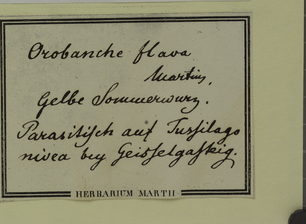 Orobanche flava
Martius,
Gelbe Sommerwurz.
Parasitisch auf Tussilago
nivea bey Geisselgasteig.
HERBARIUM MARTII